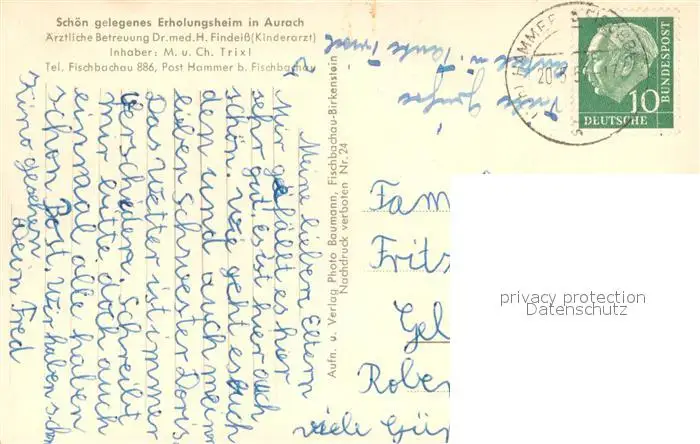 Schön gelegenes Erholungsheim in Aurach
Ärztliche Betreuung Dr. med. H. Findeiß (Kinderarzt)
Inhaber: M. u. Ch. Trixl
Tel. Fischbachau 886, Post Hammer b. Fischbachau
Meine lieben Eltern
Mir gefällt es hier
sehr gut. es ist hier auch
schön. wie geht es euch
den und auch meiner
lieben schwester Doris
Das Wetter ist immer
verschieden. Schreibt
mir bitte doch auch
einmal alle haben
schon Post. Wir haben schon
Kino gesehen.
Dein Fred
Aufn. u. Verlag Photo Baumann, Fischbachau-Birkenstein
Nachdruck verboten Nr. 24
HAMMER
20.5.5
DEUTSCHE
BUNDESPOST
10
Fam
Fritz
Gel
Rober
viele
privacy protection
Datenschutz